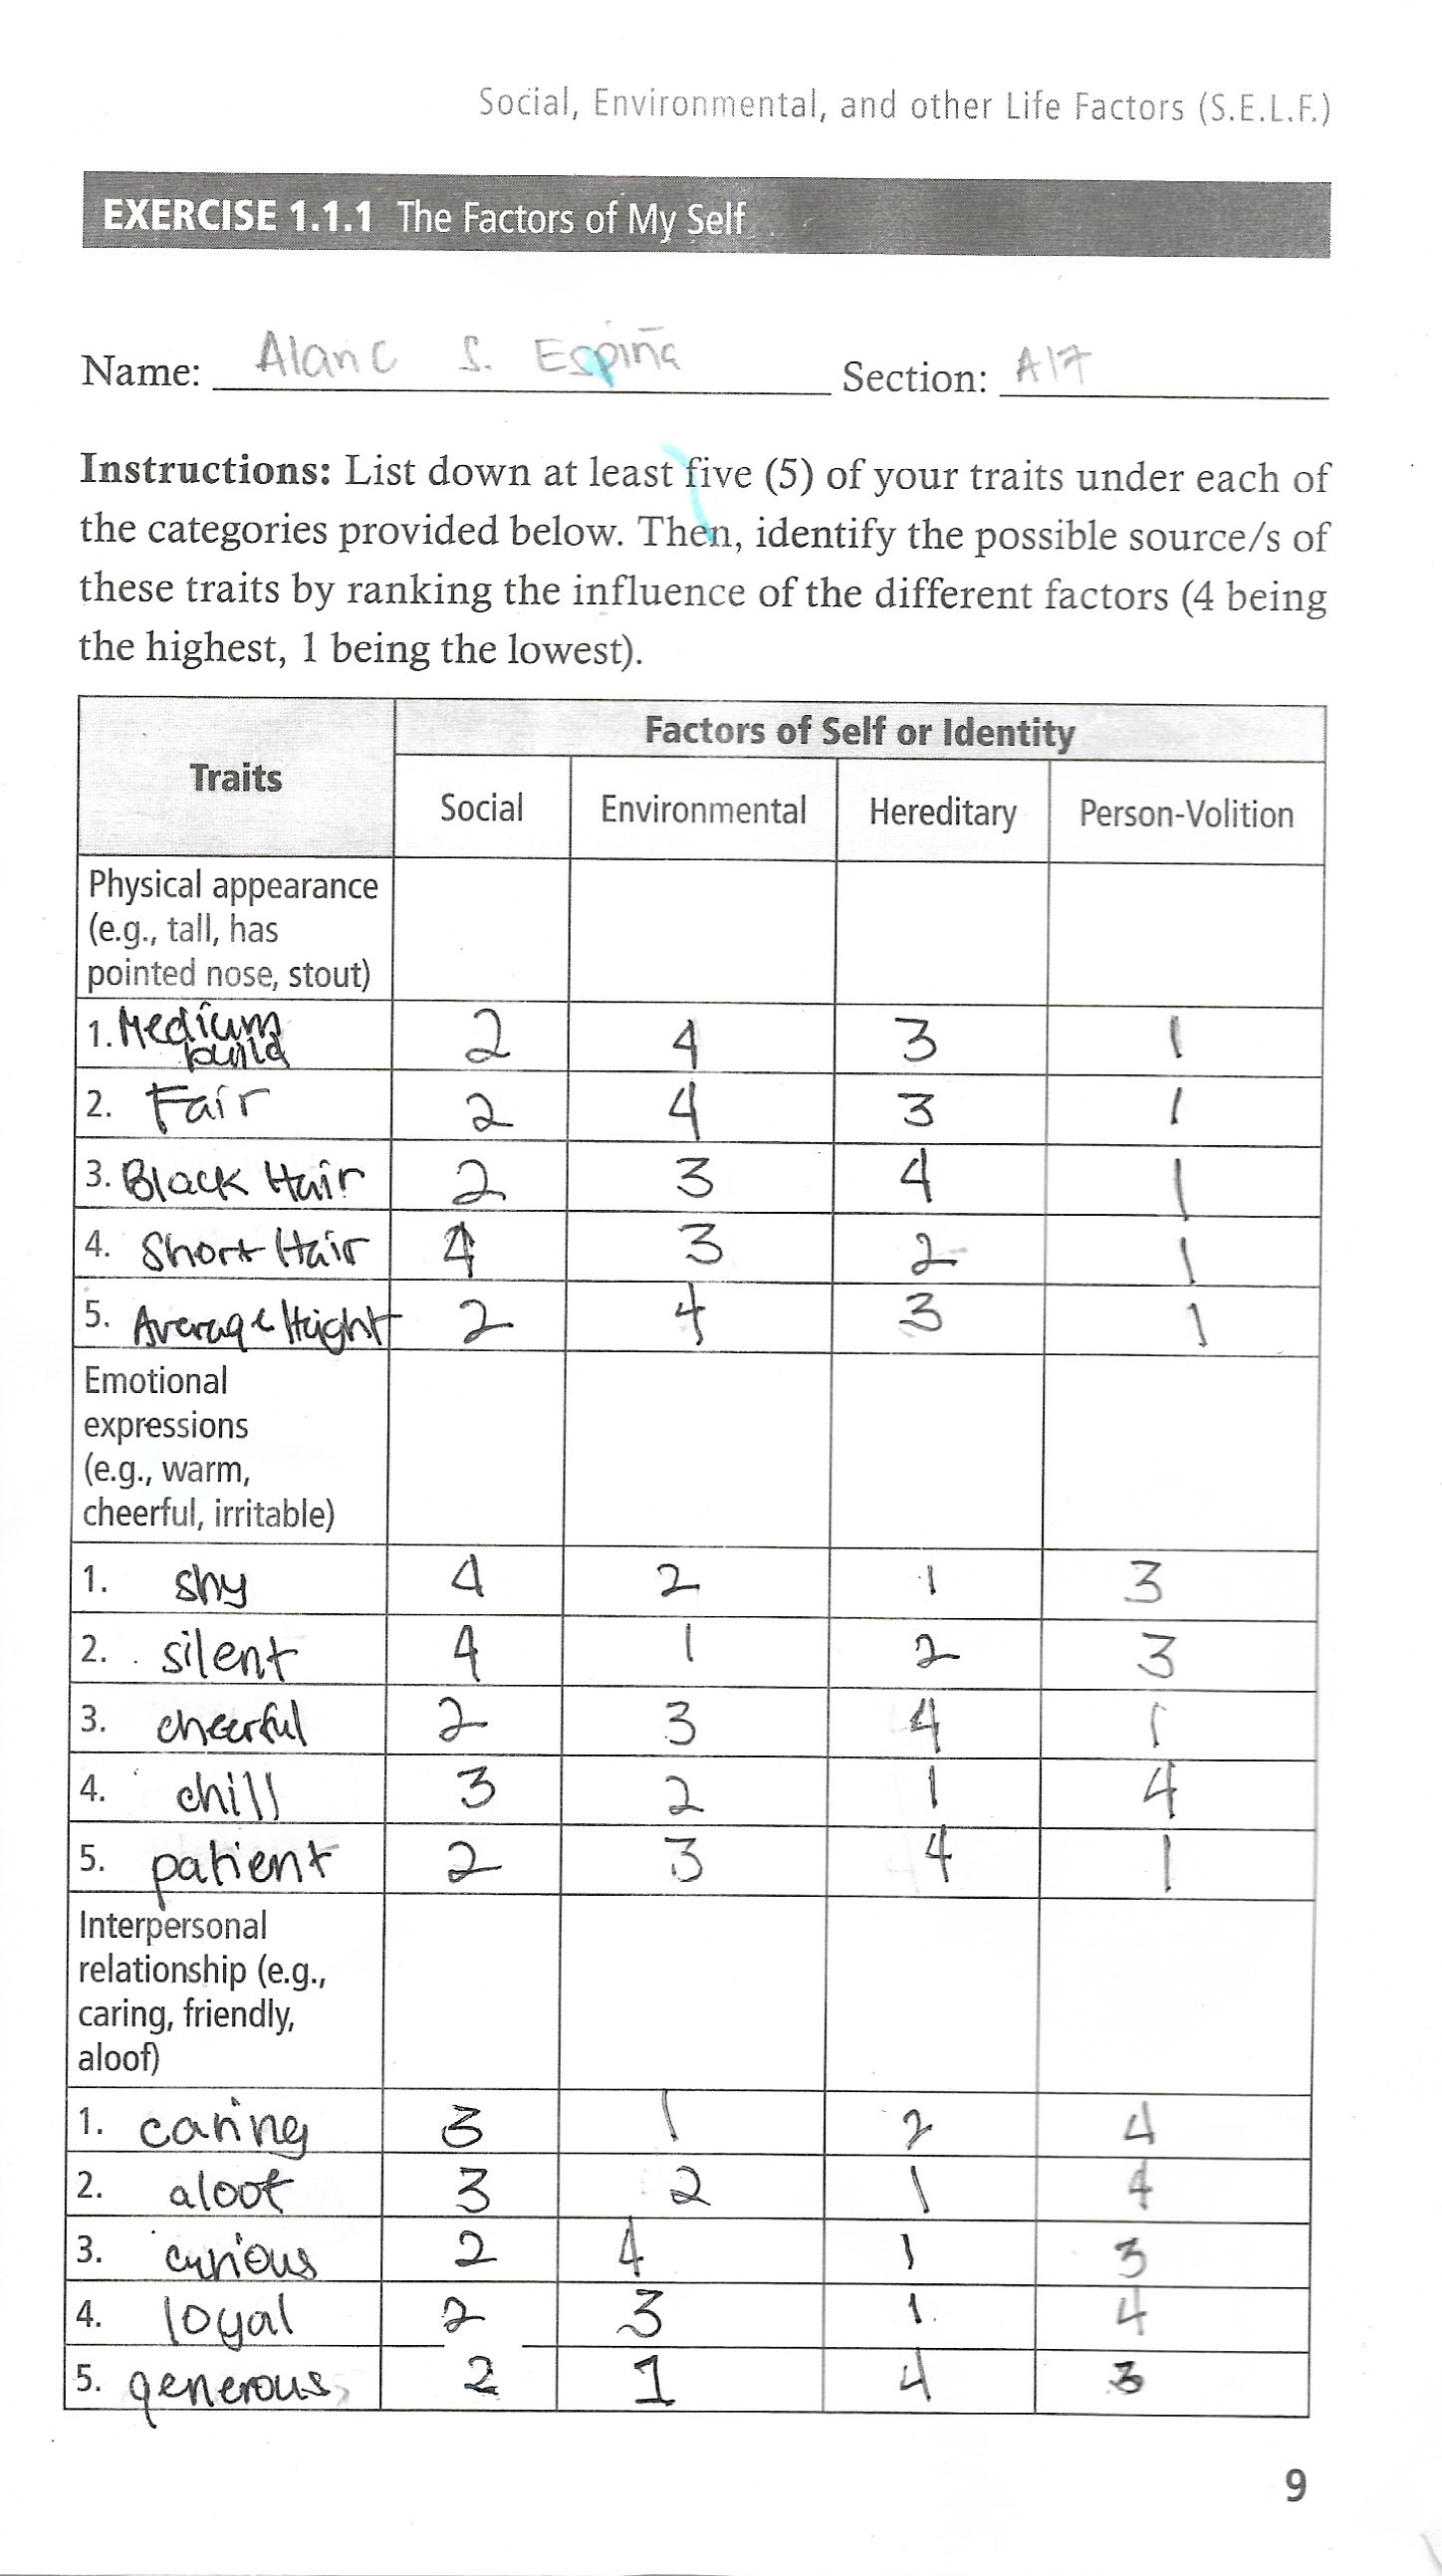 Social, Environmental, and other Life Factors (S.E.L.F.)
EXERCISE 1.1.1 The Factors of My Self
Name: Alanc S. Espiña Section: A17
Instructions: List down at least five (5) of your traits under each of
the categories provided below. Then, identify the possible source/s of
these traits by ranking the influence of the different factors (4 being
the highest, 1 being the lowest).
Traits
Factors of Self or Identity
Social Environmental Hereditary Person-Volition
Physical appearance
(e.g., tall, has
pointed nose, stout)
1. Medium
build 2 4 3 1
2. Fair 2 4 3 1
3. Black Hair 2 3 4 1
4. Short Hair 4 3 2 1
5. Average Height 2 4 3 1
Emotional
expressions
(e.g., warm,
cheerful, irritable)
1. shy 4 2 1 3
2. silent 4 1 2 3
3. cheerful 2 3 4 1
4. chill 3 2 1 4
5. patient 2 3 4 1
Interpersonal
relationship (e.g.,
caring, friendly,
aloof)
1. caring 3 1 2 4
2. aloof 3 2 1 4
3. curious 2 4 1 3
4. loyal 2 3 1 4
5. generous 2 1 4 3
9